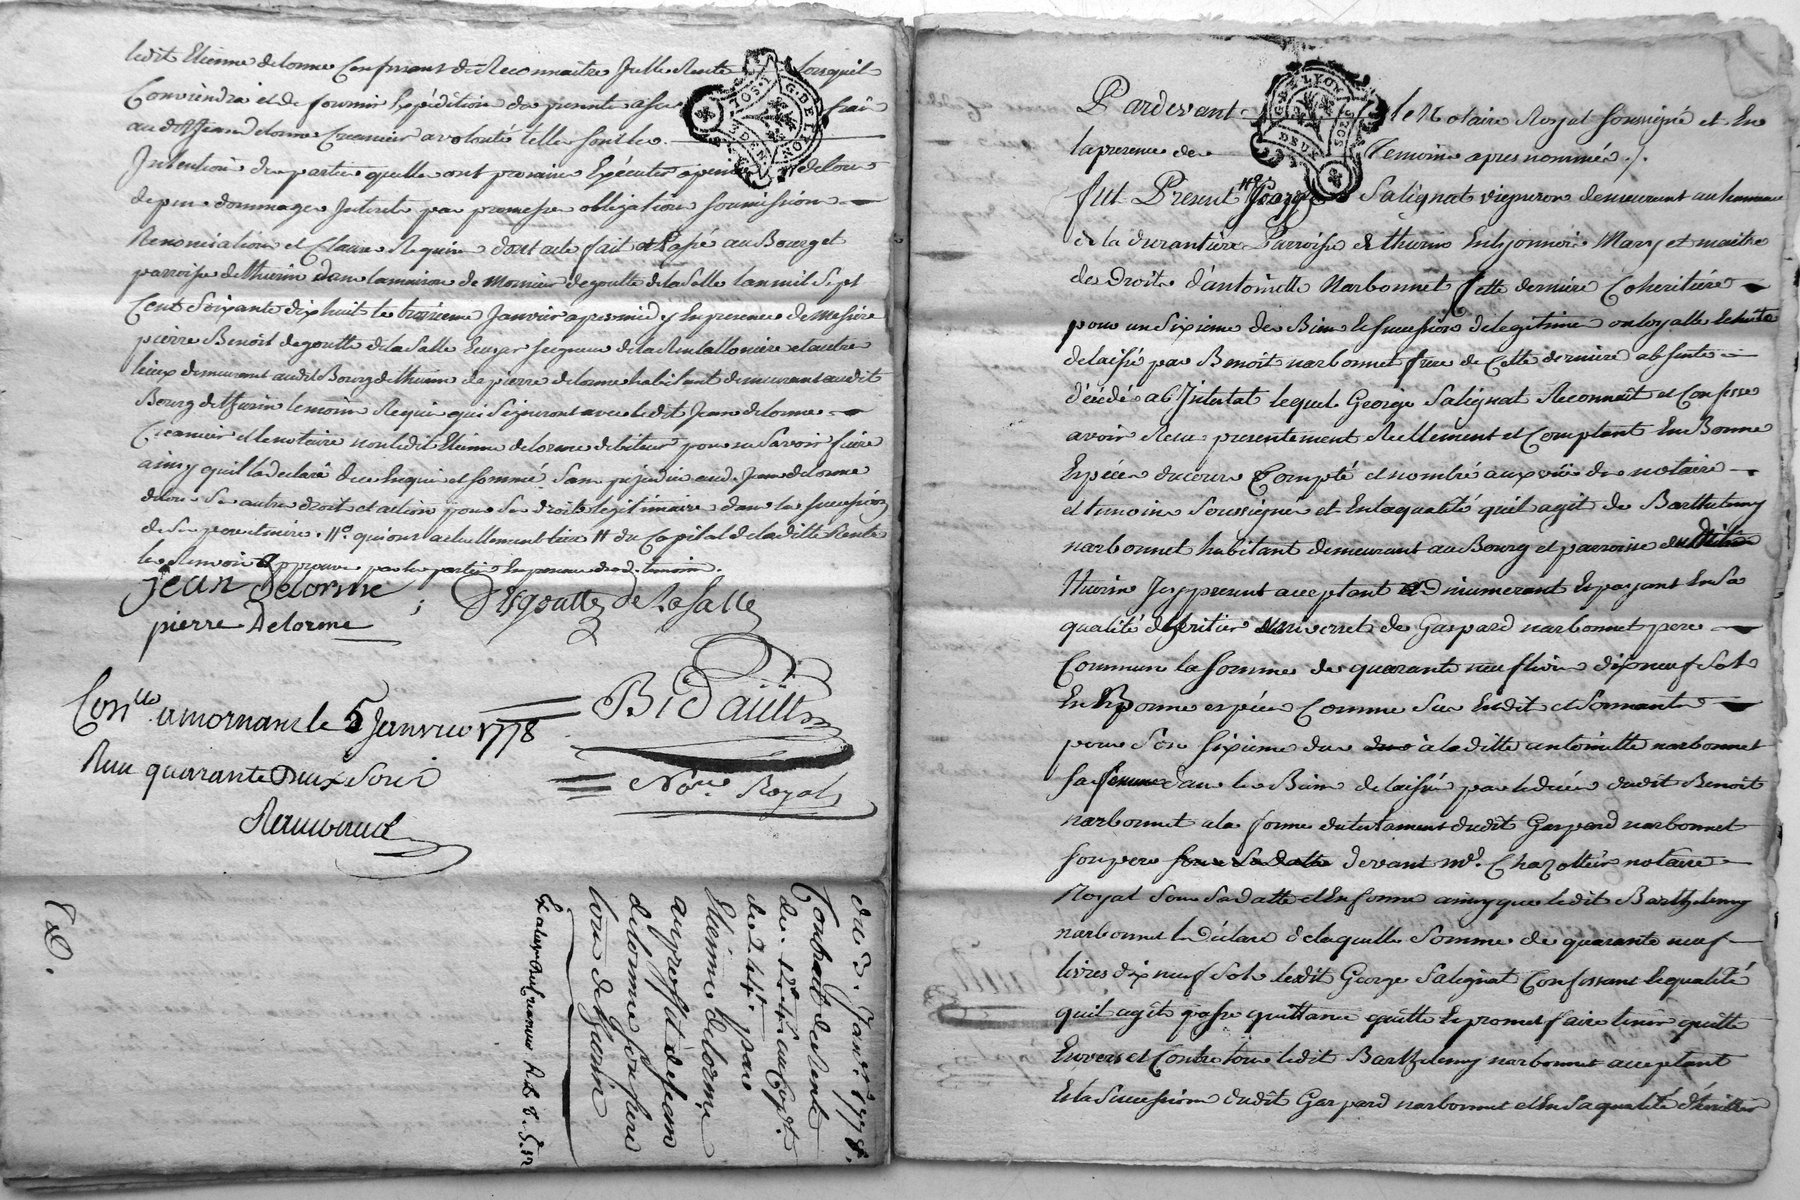 ledit Etienne delorme Confessant de Reconnaitre Jcelle Rente lorsquil
Conviendra et de fournir Expedition des presentes a ses frais
audit Jean delorme Creancier a volonté telles sont les
Intentions des parties quelles ont promis Executer a peine de tous
depens dommages Interets par promesses obligations soumissions
Renonciations et Clauses Requises dont acte fait et Passé au Bourg et
parroisse de thurin dans la maison de Monsieur degoutte de la Salle lan mil Sept
Cent Soixante dix huit le troisieme Janvier apres midy En presence de Messire
pierre Benoit degoutte de la Salle Ecuyer Seigneur de la et autres
lieux demeurant audit Bourg de thurin de pierre delorme habitant demeurant audit
Bourg de thurin temoins Requis qui Signeront avec ledit Jean delorme
Creancier et le notaire non ledit Etienne delorme debiteur pour ne Savoir faire
ainsy quil la declaré de ce Enquis et sommé Sans prejudice aud. Jean delorme
de tous Ses autres droits et actions pour Ses droits legitimaires dans la succession
de Ses pere et mere . qui ont actuellement lieu du Capital de la ditte Rente
le Renvoi approuvé par les parties En presence desd. temoins.
jean Delorme ; Degoutte de La Salle
pierre Delorme
Bidault
Nore. Royal
Conlle. a mornant le 5 Janvier 1778
Reçu quarante Deux Sous
du 3. Janer. 1778.
Constitution de Rente
de . 12# au Capt.
de 244# par
Etienne delorme
au proffit de jean
delorme son frere
tous de thurin
G. DE LYON
3 DEN
Pardevant le Notaire Royal soussigné et En
la presence des Temoins apres nommés ./.
fut Present George Salignat vigneron demeurant au hameau
de la durantiere Parroisse de thurin En lyonnois Mary et maitre
des Droits d'antoinette Narbonnet Cette derniere Coheritiére
pour un Sixieme des Biens et Succession de legitime
delaissé par Benoît narbonnet frere de Cette derniere absente
décédé ab Intestat lequel George Salignat Reconnaît et Confesse
avoir Recu presentement Reellement et Comptant En Bonnes
Especes du cours Compté et nombré aux vües des notaire
et temoins Soussignés et En la qualité quil agit de Barthelemy
narbonnet habitant demeurant au Bourg et parroisse dudit
thurin Jcy present acceptant et Payant En Sa
qualité d'heritier universel de Gaspard narbonnet pere
Commun la somme de quarante neuf livres dix neuf Sols
En Bonnes especes Comme Sus Est dit et Sonnantes
pour Son Sixieme due a la ditte antoinette narbonnet
sa femme dans les Biens delaissés par le décés dudit Benoit
narbonnet a la forme du testament dudit Gaspard narbonnet
son pere Sous Sa datte devant Me. Chazottier notaire
Royal Sous Sa datte et En forme ainsy que ledit Barthelemy
narbonnet la Déclaré de laquelle Somme de quarante neuf
livres dix neuf Sols ledit George Salignat Confessant Es qualité
quil agit passe quittance quitte Et promet faire tenir quitte
Envers et Contre tous ledit Barthelemy narbonnet acceptant
Et la Succession dudit Gaspard narbonnet et En Sa qualité d'héritier
G. DE LYON
DEUX SOLS